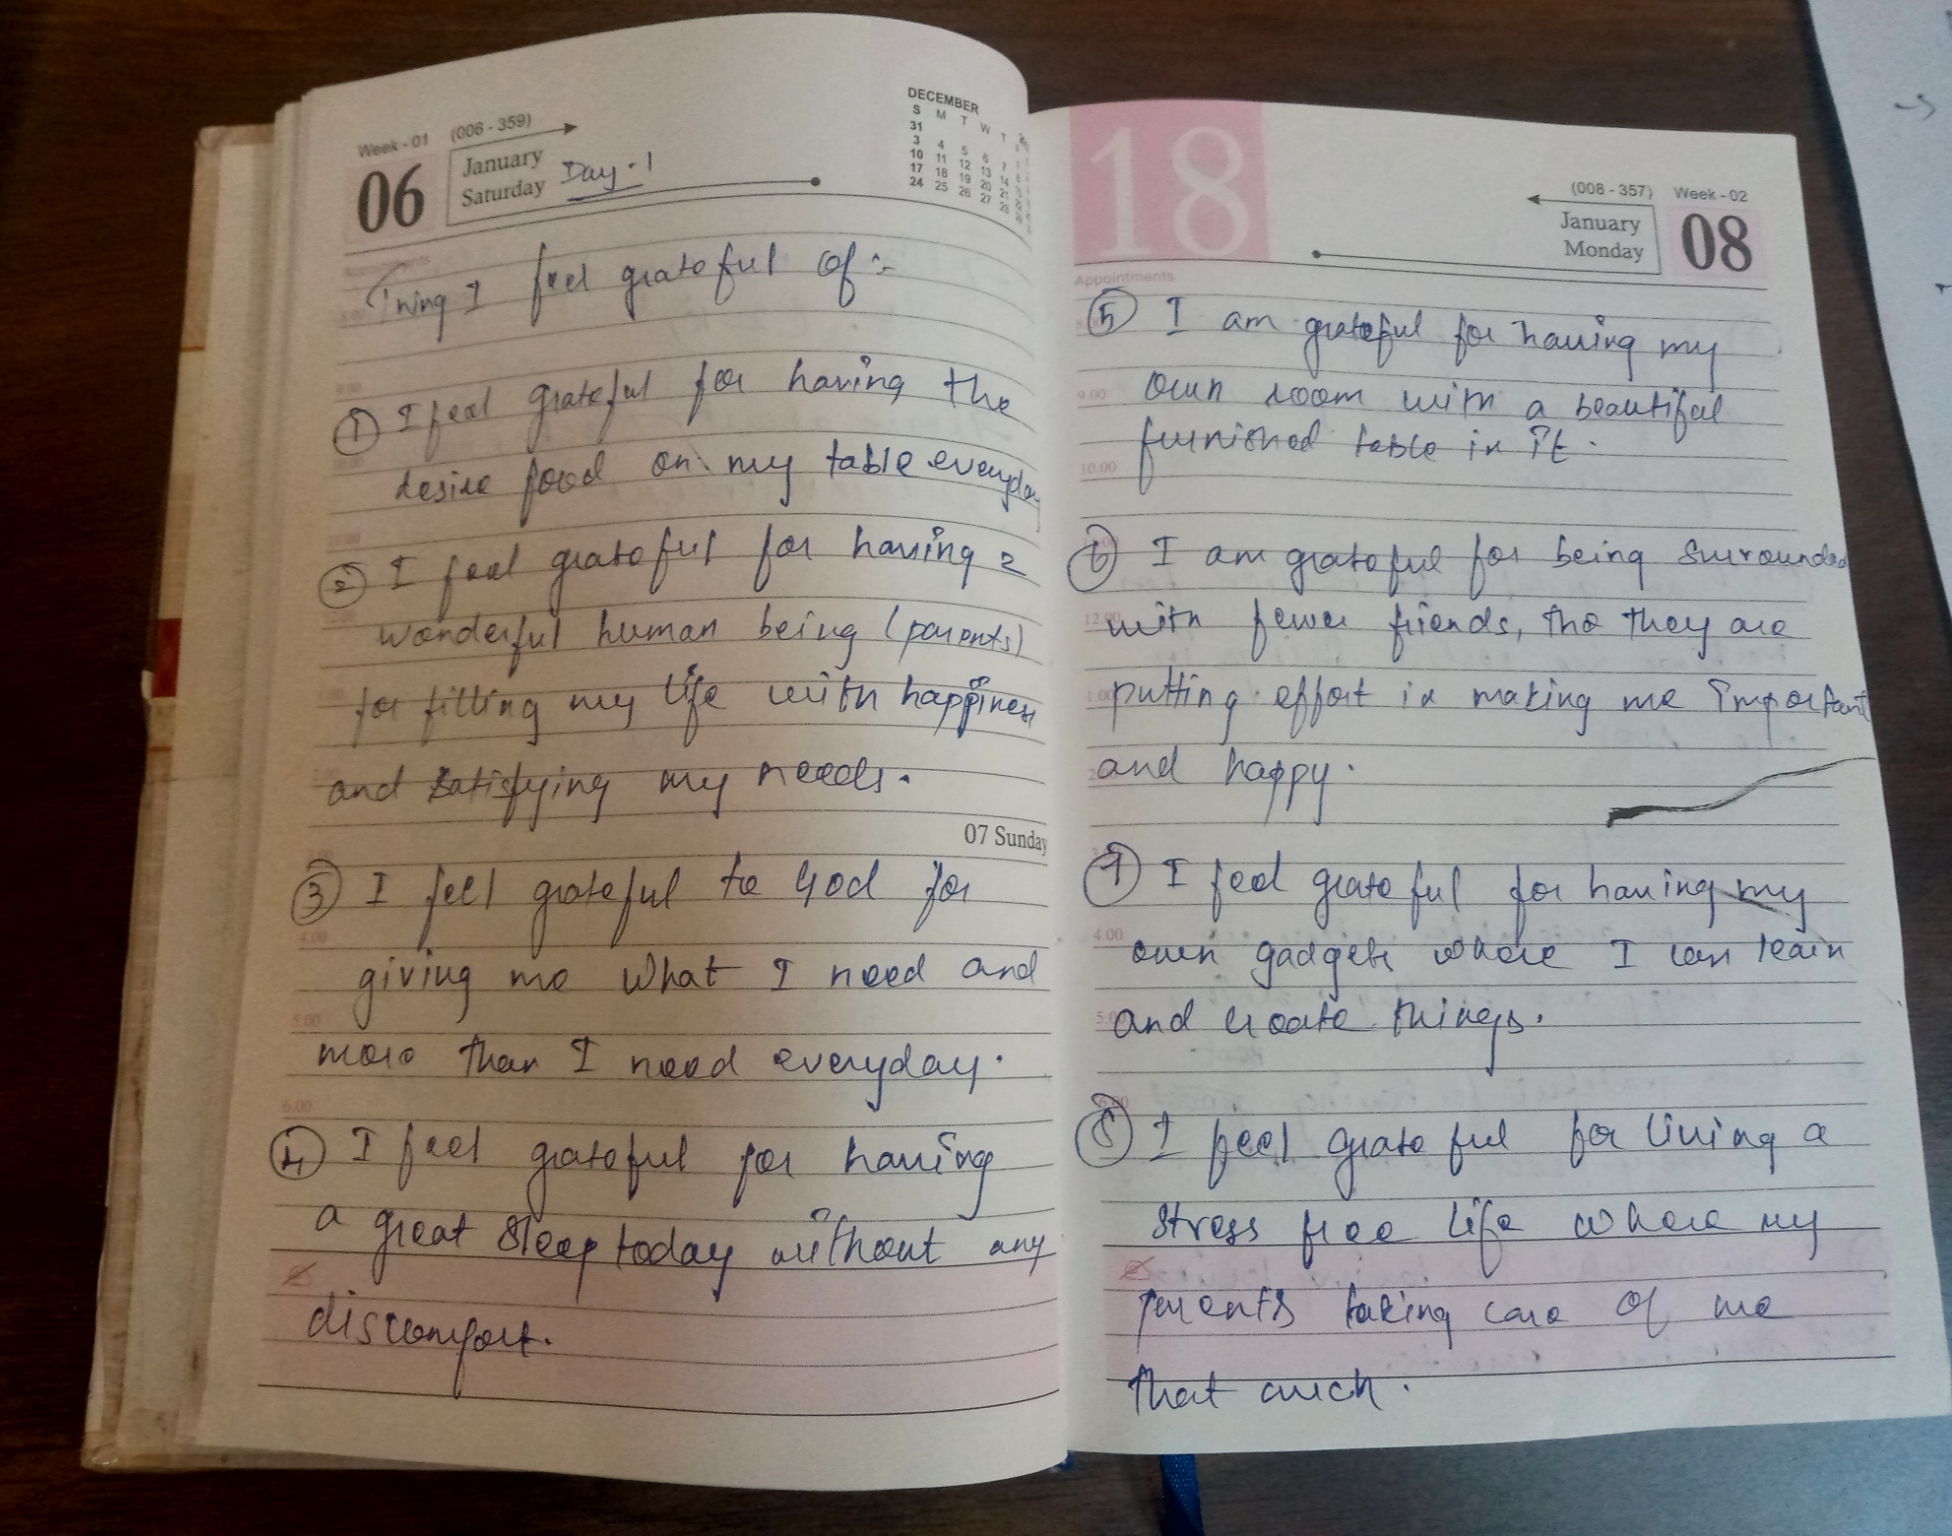 Week - 01 (006 - 359)
06 January
Saturday Day - 1
DECEMBER
S M T W T
31
3 4 5 6 7
10 11 12 13 14
17 18 19 20 21
24 25 26 27 28
Appointments
Thing I feel grateful of :-
① I feel grateful for having the
desire food on my table everyday
② I feel grateful for having 2
wonderful human being (parents)
for filling my life with happiness
and satisfying my needs.
07 Sunday
③ I feel grateful to God for
giving me what I need and
more than I need everyday.
④ I feel grateful for having
a great sleep today without any
discomfort.
18
(008 - 357) Week - 02
January
Monday 08
Appointments
⑤ I am grateful for having my
9.00 own room with a beautiful
furnished table in it.
10.00
⑥ I am grateful for being surrounded
12.00 with fewer friends, tho they are
1.00 putting effort in making me important
and happy.
⑦ I feel grateful for having my
4.00 own gadgets where I can learn
5.00 and create things.
6.00
⑧ I feel grateful for living a
stress free life where my
parents taking care of me
that much.